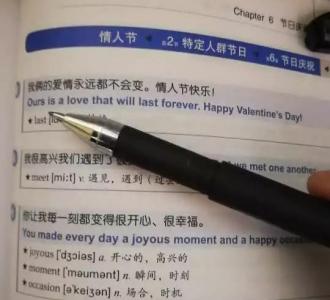 Chapter 6 节日庆
情人节 第2节 特定人群节日 第6章 节日庆祝
我俩的爱情永远都不会变。情人节快乐!
Ours is a love that will last forever. Happy Valentine's Day!
★last
我很高兴我们遇到了 we met one another.
★meet [miːt] v. 遇见，遇到（过去
你让我每一刻都变得很开心、很幸福。
You made every day a joyous moment and a happy occasion
★joyous ['dʒɔiəs] a. 开心的，高兴的
★moment ['məumənt] n. 瞬间，时刻
★occasion [ə'keiʒən] n. 场合，时机